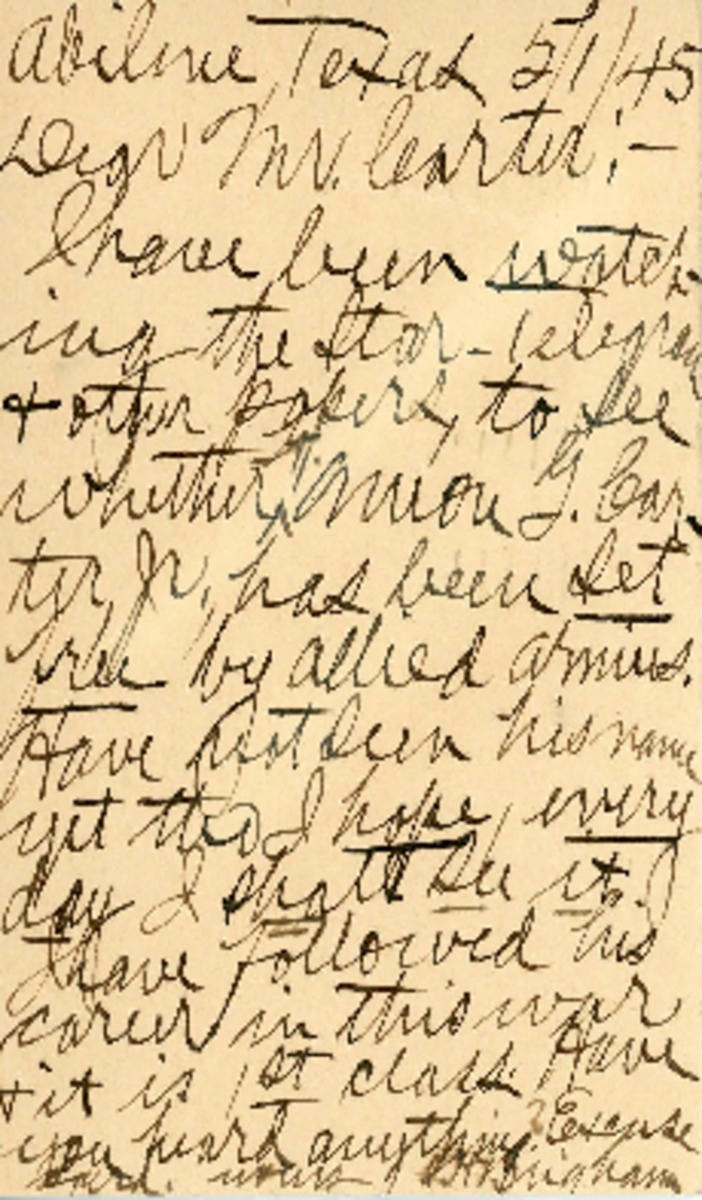 Abilene, Texas 5/1/45
Dear Mr. Carter:-
I have been watch-
ing the Star-Telegram
& other papers, to see
whether Amon G. Car-
ter Jr., has been set
free by allied armies.
Have not seen his name
yet tho I hope, every
day I shall see it.
I have followed his
career in this war
& it is 1st class. Have
you heard anything? Excuse
card. yours Brigham